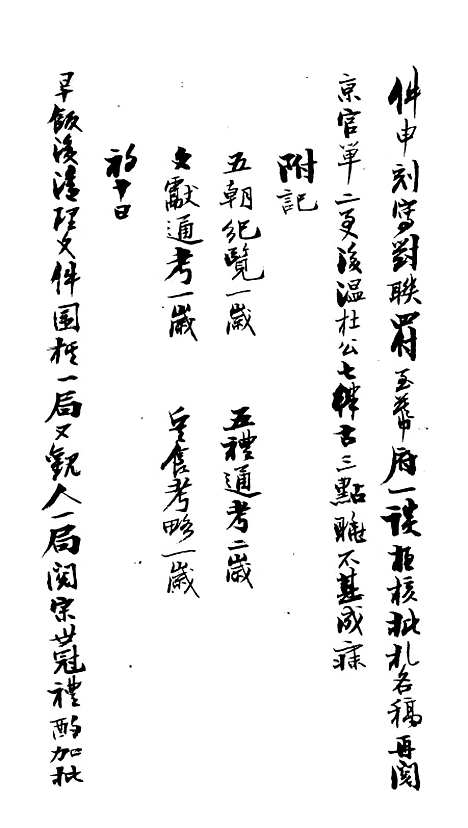 件申刻寫對聯四付至幕府一談夜核批札各稿再閱
京官单二更後溫杜公七律古三點睡不甚成寐
附記
五朝纪覽一歲 五禮通考二歲
文獻通考一歲 考略一歲
初十日
早飯後清理文件圍棋一局又觀人一局閱宗世冠禮酌加批